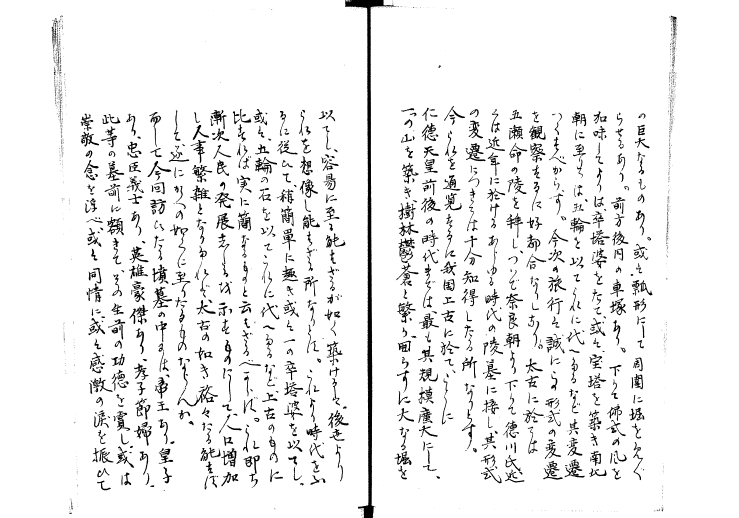 の巨大なるものあり。或は瓢形にして周囲に堀を
らせるあり。前方後円の車塚あり。下りて佛式の風を
加味してよりは卒塔婆をたて或は宝塔を築き南北
朝に至りては五輪を以てこれに代へるなど其変遷
べからず。今次の旅行は誠にこの形式の変遷
を観察するに好都合なりしなり。太古に於ては
五瀬命の陵を拝しつゝ奈良朝より下りて徳川氏
は近年に於けるあらゆる時代の陵墓に接し其形式
の変遷につきては十分知得したる所なりとす。
今これを通覧するに我国上古に於て、ことに
仁徳天皇前後の時代までは最も其規模廣大にして、
一つの山を築き樹林鬱蒼と繁り回らすに大なる堀を
以てし、容易に至る能はざるが如く築けるは、後世より
これを想像し能はざる所なりとす。これより時代を
るに従ひて稍簡単に趣き或は一の卒塔婆を以てし、
或は五輪の石を以てこれに代へるなど上古のものに
比すれば実に簡なるものと云はざるべからず。これ即ち
漸次人民の発展せしを示すものにして、人口増加
し人事繁雑となりたれば太古の如き裕々たる能はず
して遂にかくの如くに至りたるものならんか。
而して今回訪ひたる墳墓の中には帝王あり、皇子
あり、忠臣義士あり、英雄豪傑あり、孝子節婦あり、
此等の墓前に額きて、その生前の功徳を賞し、或は
崇敬の念を浮べ或は同情に、或は感激の涙を振ひて